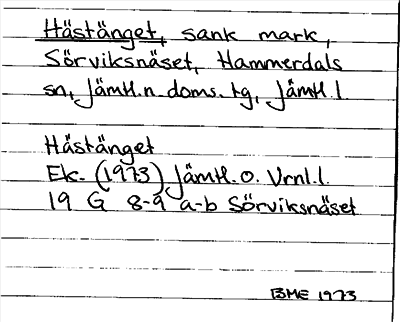 Hästänget, sank mark,
Sörviksnäset, Hammerdals
sn, Jämtl.n.doms.tg, Jämtl.l.
Hästänget
Ek. (1973) Jämtl.o. Vrnl.l.
19 G 8-9 a-b Sörviksnäset
BME 1973